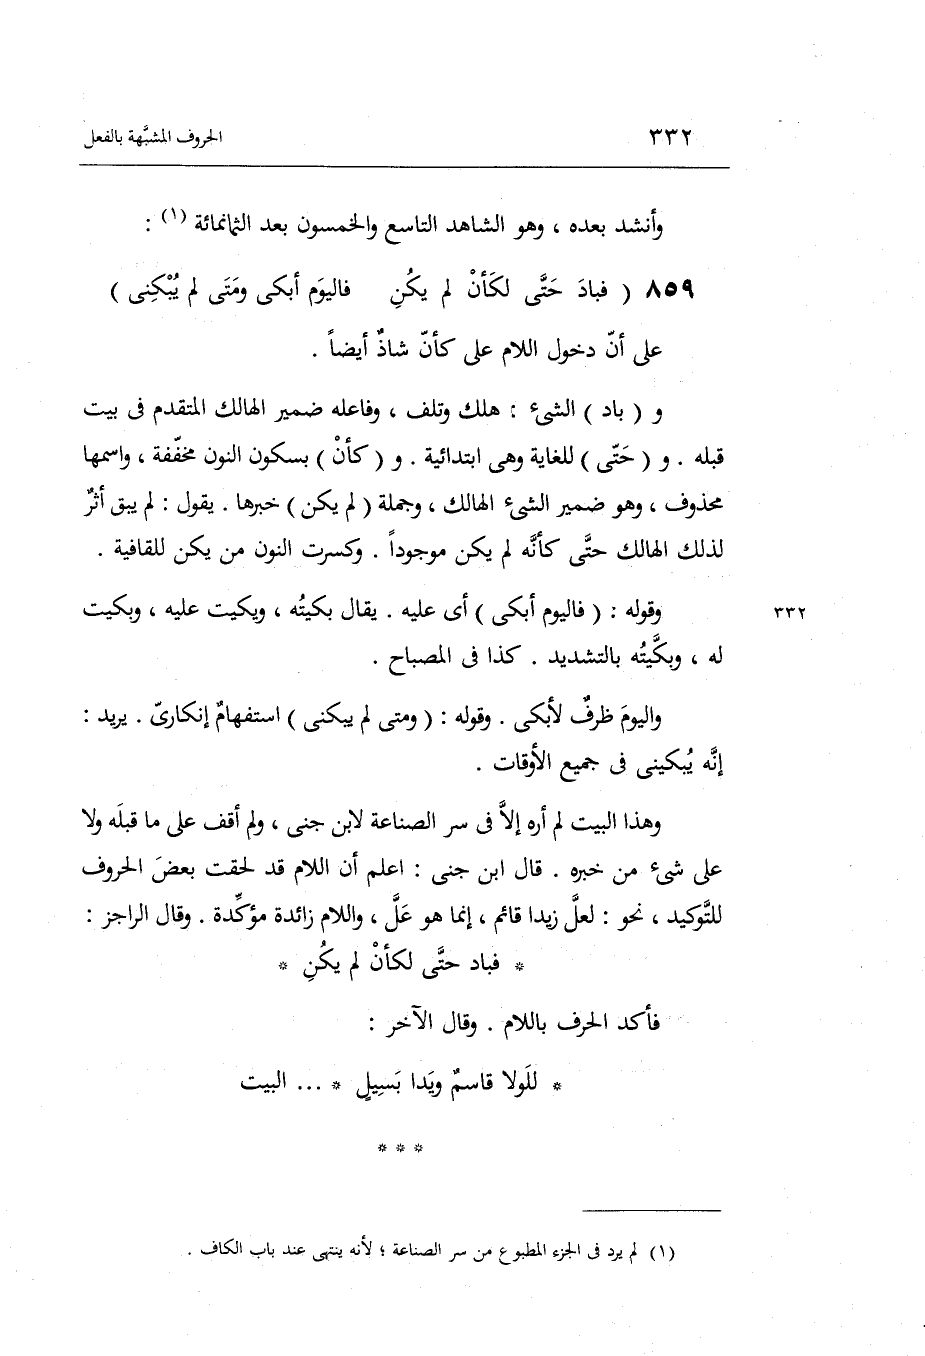 ٣٣٢ الحروف المشبَّهة بالفعل
وأنشد بعده ، وهو الشاهد التاسع والخمسون بعد الثمانمائة (١) :
٨٥٩ ( فبادَ حَتَّى لكَأنْ لم يكُنِ فاليوَم أبكى ومَتَى لم يُبْكِنى )
على أنّ دخول اللام على كأنّ شاذٌ أيضاً .
و ( باد ) الشىء : هلك وتلف ، وفاعله ضمير الهالك المتقدم فى بيت
قبله . و ( حَتّى ) للغاية وهى ابتدائية . و ( كأنْ ) بسكون النون مخفّفة ، واسمها
محذوف ، وهو ضمير الشىء الهالك ، وجملة ( لم يكن ) خبرها . يقول : لم يبق أثرٌ
لذلك الهالك حتَّى كأنَّه لم يكن موجوداً . وكسرت النون من يكن للقافية .
وقوله : ( فاليوم أبكى ) أى عليه . يقال بكيتُه ، وبكيت عليه ، وبكيت ٣٣٢
له ، وبكَّيتُه بالتشديد . كذا فى المصباح .
واليومَ ظرفٌ لأبكى . وقوله : ( ومتى لم يبكنى ) استفهامٌ إنكارىّ . يريد :
إنَّه يُبكينى فى جميع الأوقات .
وهذا البيت لم أره إلاَّ فى سر الصناعة لابن جنى ، ولم أقف على ما قبلَه ولا
على شىء من خبره . قال ابن جنى : اعلم أن اللام قد لحقت بعضَ الحروف
للتَّوكيد ، نحو : لعلَّ زيدا قائم ، إنما هو عَلَّ ، واللام زائدة مؤكِّدة . وقال الراجز :
* فباد حتَّى لكأنْ لم يكُنِ *
فأكد الحرف باللام . وقال الآخر :
* للَولا قاسمٌ ويَدا بَسِيلٍ * ... البيت
* * *
(١) لم يرد فى الجزء المطبوع من سر الصناعة ؛ لأنه ينتهى عند باب الكاف .